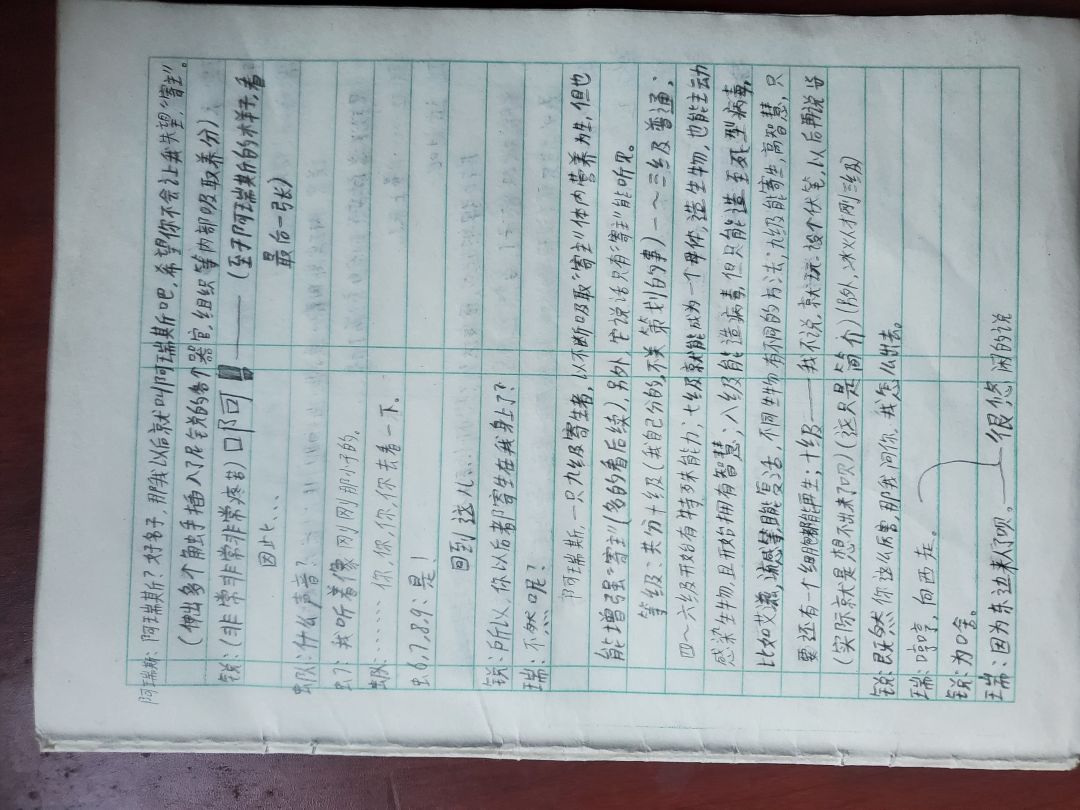 阿瑞斯：阿瑞斯？好名子，那我以后就叫阿瑞斯吧，希望你不会让我失望，“寄主”。
（伸出多个触手插入了尼锐的各个器官，组织等内部吸取养分）
锐：（非常非常非常疼苦）啊啊——（至于阿瑞斯的术样子，看
最后一张）
因此…
虫队：什么声音？
虫7：我听着像刚刚那小子的。
虫队：……你，你，你，你去看一下。
虫6,7,8,9：是！
回到这儿…
锐：所以，你以后都寄生在我身上了？
瑞：不然呢？
阿瑞斯，一只九级寄生者，以不断吸取“寄主”体内营养为生，但也
能增强“寄主”（多的看后续），另外，它说话只有“寄主”能听见。
等级：共分十级（我自己分的，不关策划的事）一～三级普通；
四～六级开始有特殊能力；七级就能成为一个母体，造生物，也能主动
感染生物，且开始拥有智慧；八级能造病毒，但只能造至死型病毒，
比如艾滋，流感等，能复活，不同生物有不同的方法；九级能寄生，高智慧，只
要还有一个细胞都能再生；十级——我不说，就玩。设个伏笔，以后再说
（实际就是想不出来了呗）（这只是简介）（另外，冰火才刚三级）
锐：既然你这么厉害，那我问你，我怎么出去。
瑞：哼哼，向西走。
锐：为啥。
瑞：因为东边来人了呗。——很悠闲的说